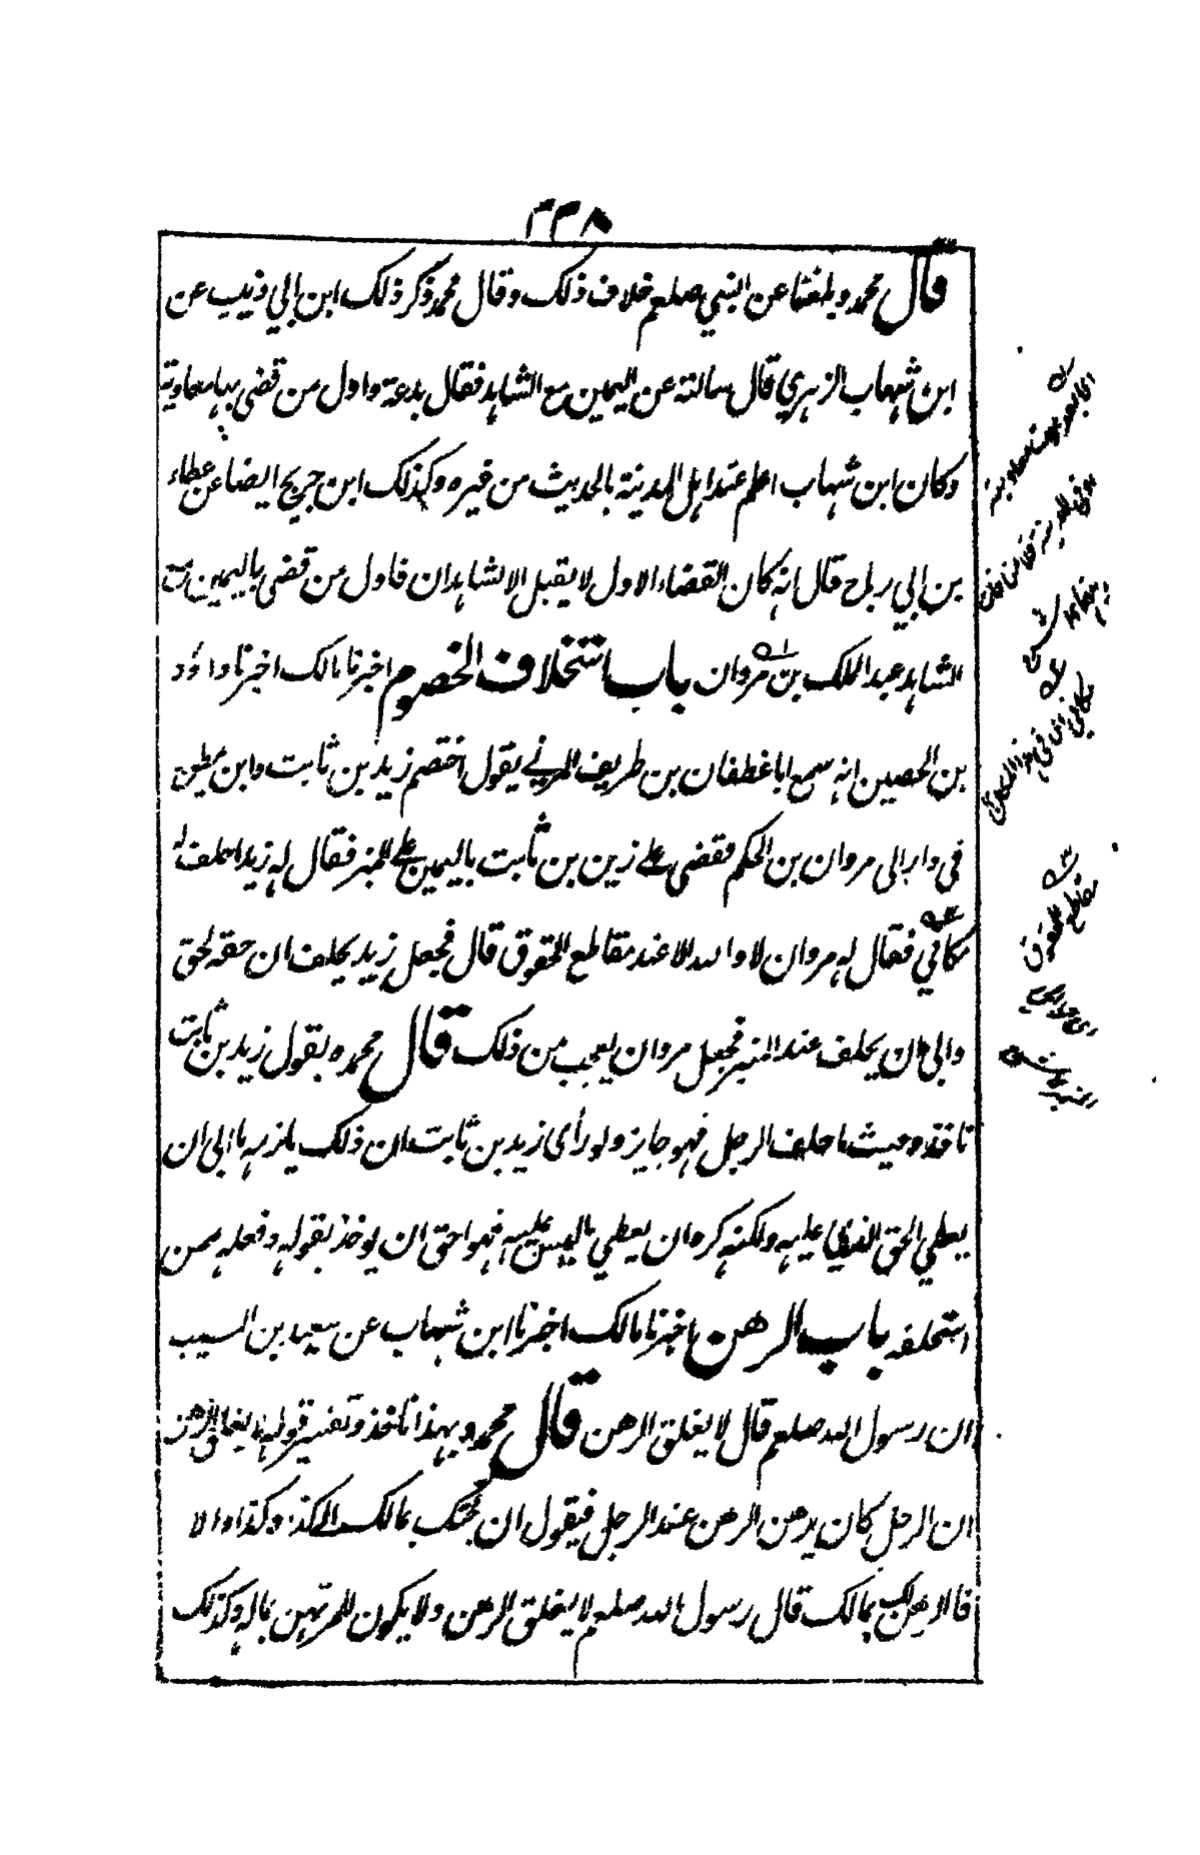 ٣٣٨
قال محمد وبلغنا عن النبي صلعم خلاف ذلك وقال محمد ذكر ذلك ابن ابي ذئب عن
ابن شهاب الزهري قال سالته عن اليمين مع الشاهد فقال بدعة واول من قضى بها معاوية
وكان ابن شهاب اعلم عند اهل المدينة بالحديث من غيره وكذلك ابن جريج ايضا عن عطاء
بن ابي رباح قال انه كان القضاء الاول لا يقبل الا لشاهدان فاول من قضى باليمين مع
الشاهد عبد الملك بن مروان باب استحلاف الخصوم اخبرنا مالك اخبرنا داؤد
بن الحصين انه سمع ابا غطفان بن طريف المري يقول اختصم زيد بن ثابت وابن مطيع
في دار الى مروان بن الحكم فقضى على زيد بن ثابت باليمين على المنبر فقال له زيد احلف له
مكاني فقال له مروان لا والله الا عند مقاطع الحقوق قال فجعل زيد يحلف ان حقه لحق
وابى ان يحلف عند المنبر فجعل مروان يعجب من ذلك قال محمد وبقول زيد بن ثابت
ناخذ وحيث ما حلف الرجل فهو جايز ولو رأى زيد بن ثابت ان ذلك يلزمه ما ابى ان
يعطي الحق الذي عليه ولكنه كره ان يعطي ما ليس عليه فهو احق ان يوخذ بقوله وفعله ممن
استحلفه باب الرهن اخبرنا مالك اخبرنا ابن شهاب عن سعيد بن المسيب
ان رسول الله صلعم قال لا يغلق الرهن قال محمد وبهذا ناخذ وتفسير قوله لا يغلق الرهن
ان الرجل كان يرهن الرهن عند الرجل فيقول ان جئتك بمالك الى كذا وكذا والا
فالرهن لك بمالك قال رسول الله صلعم لا يغلق الرهن ولا يكون للمرتهن بماله وكذلك
مقاطع الحقوق